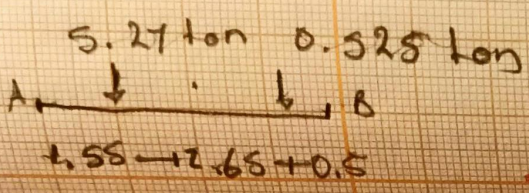 5.27 ton 0.525 ton
A B
1.55 2.65 0.5